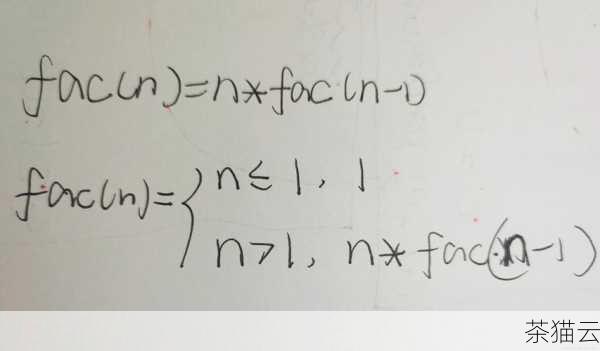 fac(n)=n*fac(n-1)
fac(n)={n≤1, 1
n>1, n*fac(n-1)
茶猫云